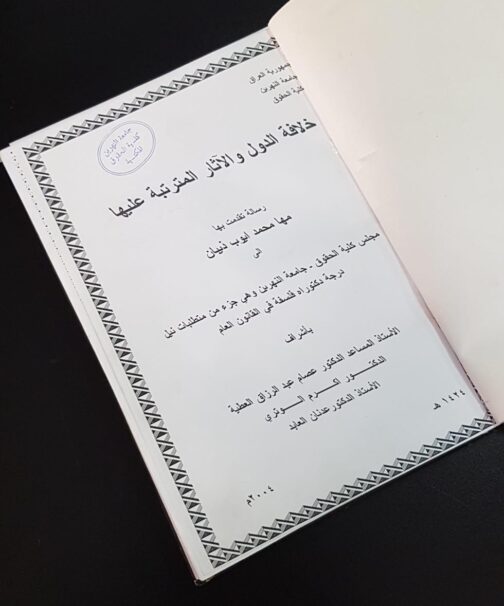 جمهورية العراق
جامعة النهرين
كلية الحقوق
جامعة النهرين
كلية الحقوق
المكتبة
خلافة الدول و الآثار المترتبة عليها
رسالة تقدمت بها
مها محمد ايوب ذبيان
الى
مجلس كلية الحقوق - جامعة النهرين وهي جزء من متطلبات نيل
درجة دكتوراه فلسفة في القانون العام
بأشراف
الأستاذ المساعد الدكتور عصام عبد الرزاق العطية
الدكتور اكرم الوتري
الأستاذ الدكتور عدنان العابد
١٤٢٤ هـ
٢٠٠٤م